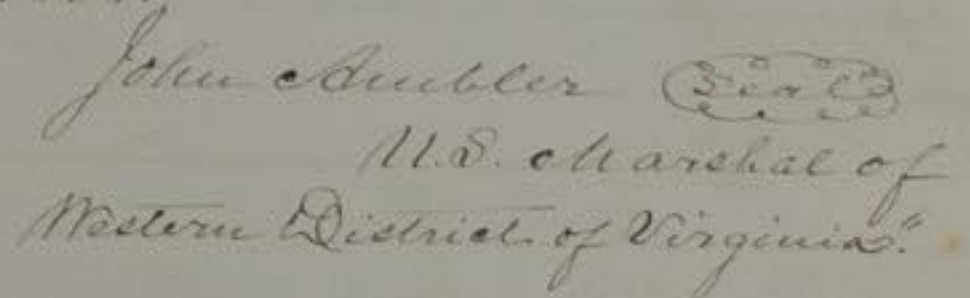 John Ambler Seal
U.S. Marshal of
Western District of Virginia."